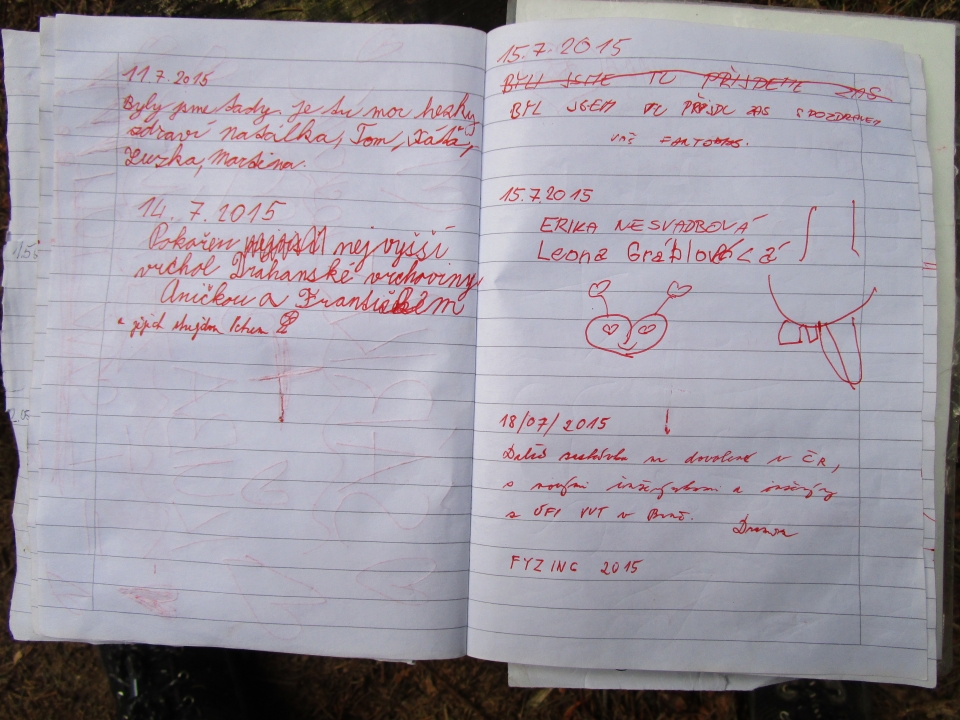 11.7.2015
Byly jsme tady. je tu moc hezky
zdraví natálka, Tom, Káťa,
Luzka, Martina.
14.7.2015
Pokořen nejvyšší
vrchol Drahanské vrchoviny
Aničkou a Františkem
a jejich strejdou Petrem
15.7.2015
BYLI JSME TU PŘIJDEME ZAS
BYL JSEM TU PŘIJDU ZAS S POZDRAVEM
VÁŠ FANTOMAS.
15.7.2015
ERIKA NESVADBOVÁ
Leona Gráblová
18/07/2015
Další na dovolené v ČR,
s novými inženýrkami a inženýry
z ÚFI VUT v Brně.
FYZING 2015